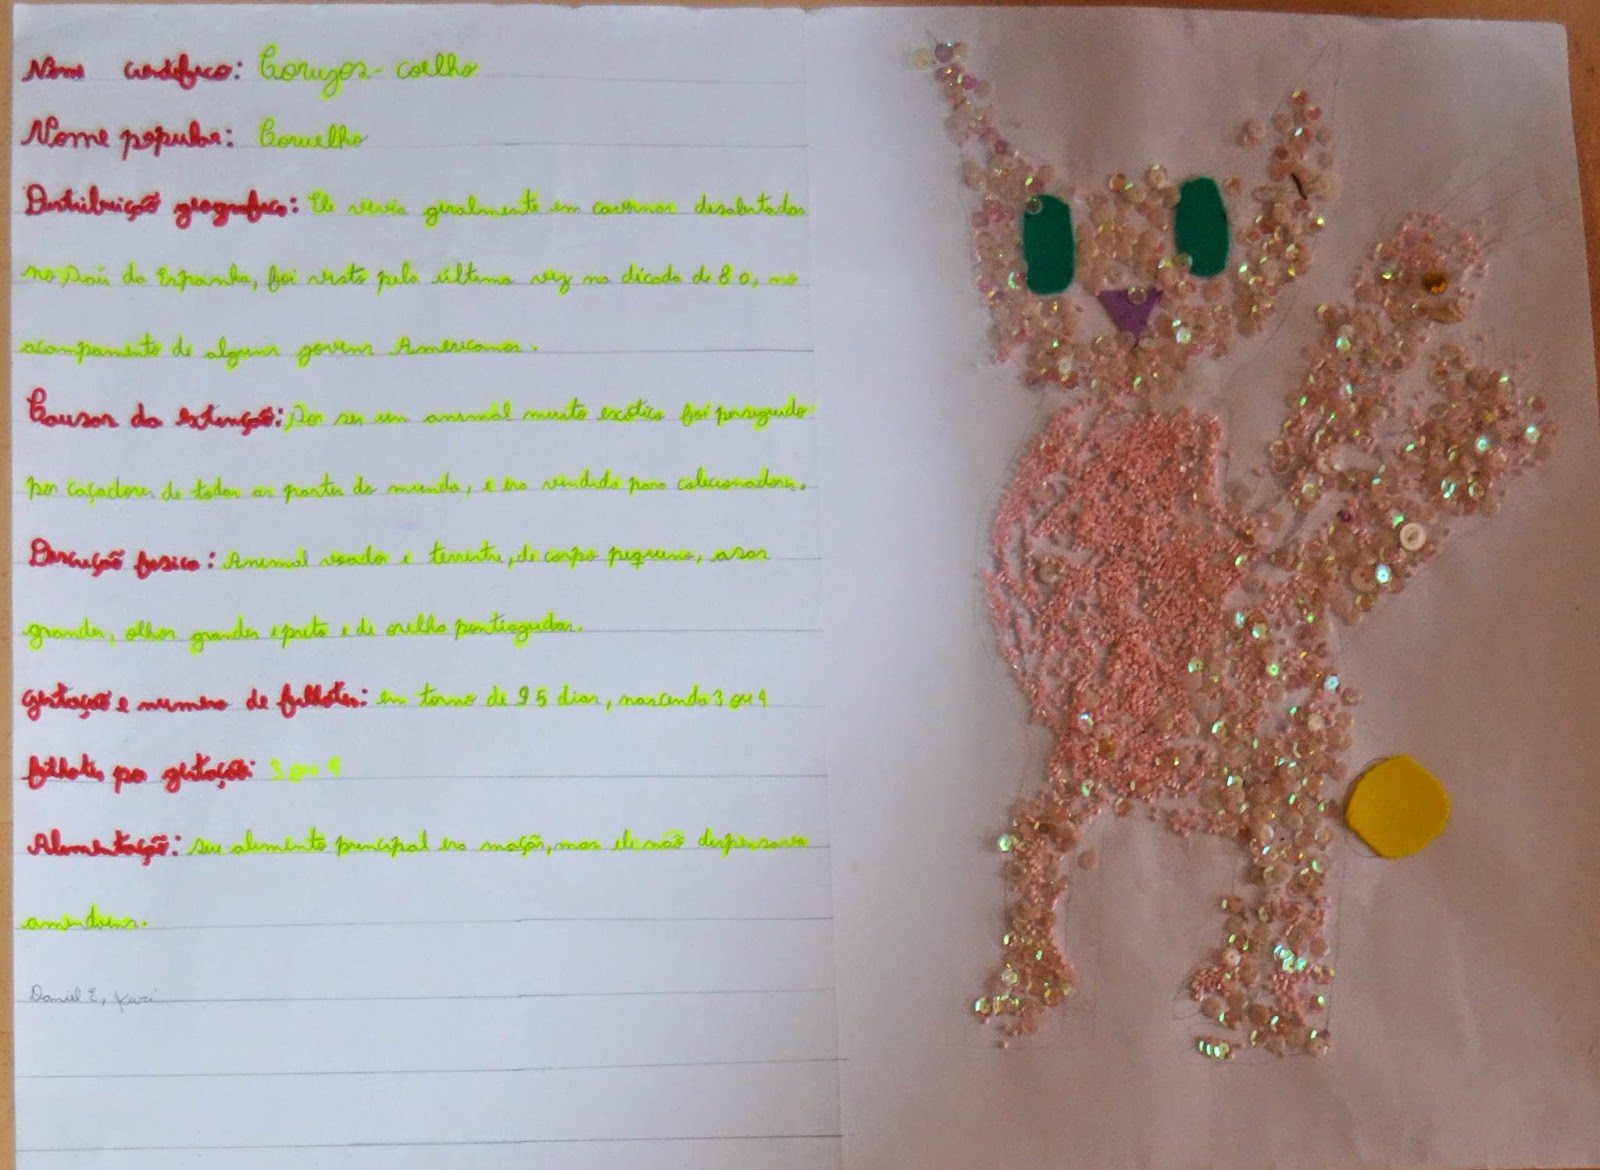 Nome cientifico: Corujos-coelho
Nome popular: Coruelho
Distribuição geografica: Ele vivia geralmente em cavernas desabitadas
no País da Espanha, foi visto pela última vez na década de 80, no
acampamento de alguns govens Americanos.
Causas da extenção: Por ser um animal muito exótico foi perseguido
por caçadores de todas as partes do mundo, e era vendido para colecionadores.
Descrição fisica: Animal voador e terrestre, de corpo pequeno, asas
grandes, olhos grandes e preto e de orelha pontiagudas.
gestação e numero de filhotes: em torno de 95 dias, nascendo 3 ou 4
filhotes por gestação: 3 ou 4
Alimentação: seu alimento principal era maçãs, mas ele não dispensava
amendoins.
Daniel E,